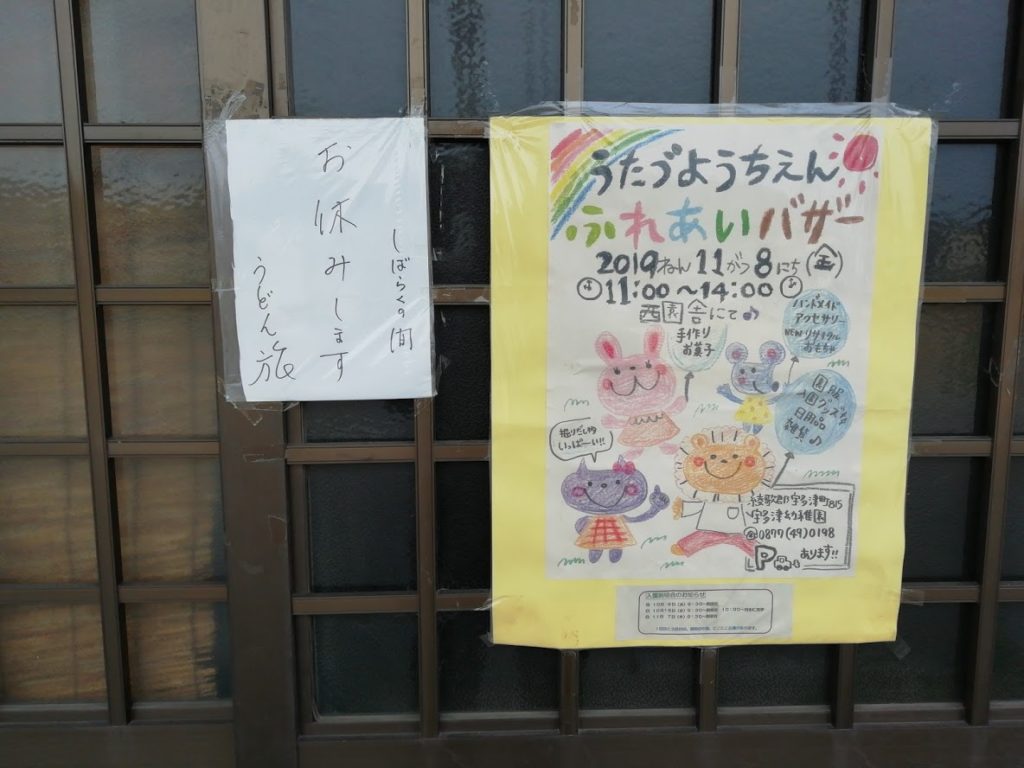 しばらくの間
お休みします
うどん旅
うたづようちえん
ふれあいバザー
2019ねん11がつ8にち(金)
11:00～14:00
西園舎にて♪
手作り
お菓子
ハンドメイド
アクセサリー
NEWリサイクル
おもちゃ
園服
入園グッズ
日用品
雑貨♪
掘りだし物
いっぱーい!!
綾歌郡宇多津町815
宇多津幼稚園
☎0877(49)0198
P あります!!
入園説明会のお知らせ